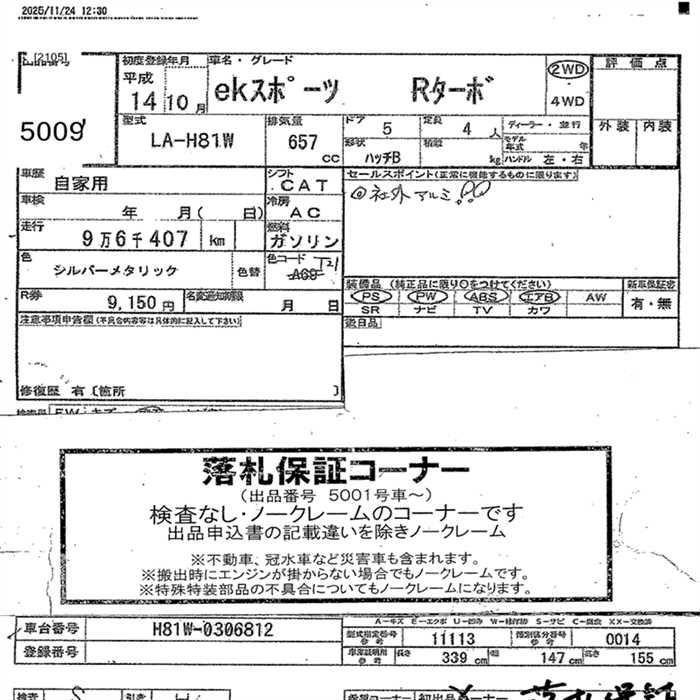 2025/11/24 12:30
[2105]
5009
初度登録年月
平成
14 10 月
車名・グレード
ekスポーツ Rターボ
2WD
4WD
評価点
外装 内装
型式
LA-H81W
排気量
657
CC
ドア
5
定員
4 人
形状
ハッチB
積載
kg
ディーラー・並行
モデル年式 年
ハンドル 左・右
車歴
自家用
シフト
CAT
車検
年 月( 日)
冷房
AC
走行
9万6千407 km
燃料
ガソリン
色
シルバーメタリック
色替
色コード
T21
A69
R券
9,150 円
名変通知期限
月 日
セールスポイント(正常に機能するものに限ります)
社外アルミ!!
装備品 (純正品に限り○をつけてください)
PS PW ABS エアB AW
SR ナビ TV カワ
新車保証書
有・無
注意事項申告欄(不具合内容等は具体的に記入して下さい)
修復歴 有〔箇所 〕
落札保証コーナー
(出品番号 5001号車~)
検査なし・ノークレームのコーナーです
出品申込書の記載違いを除きノークレーム
※不動車、冠水車など災害車も含まれます。
※搬出時にエンジンが掛からない場合でもノークレームです。
※特殊特装部品の不具合についてもノークレームになります。
A-キズ E-エクボ U-凹み W-補修跡 S-サビ C-腐食 XX-交換済
車台番号
H81W-0306812
登録番号
型式指定番号
参考
11113
類別区分番号
参考
0014
車庫証明用
参考
長さ 339 cm 幅 147 cm 高さ 155 cm
落札保証